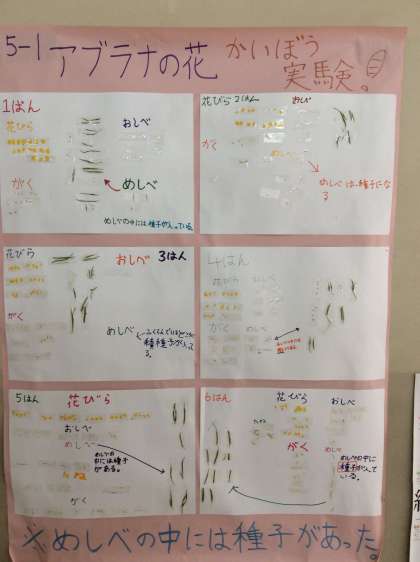 5-1 アブラナの花 かいぼう
実験。
1はん
花びら
おしべ
がく
めしべ
めしべの中には種子が入っている。
花びら 2はん おしべ
がく
めしべ
めしべは、種子になる
花びら
おしべ 3はん
がく
めしべ
種子が入ってる。
4はん
花びら おしべ
がく めしべ
5はん 花びら
おしべ
めしべ
めしべの
中には種子
がある。
がく
6はん 花びら おしべ
がく めしべ
めしべの中に
種子が入って
いる。
※めしべの中には種子があった。